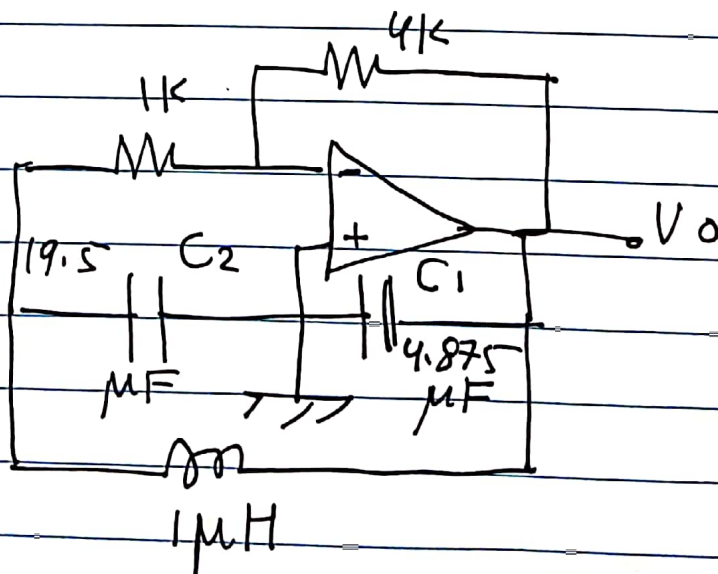 4K
1K
-
+
Vo
19.5
C2
C1
μF
4.875
μF
1μH